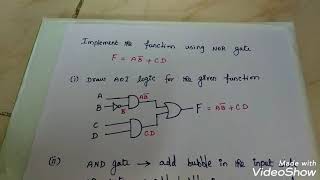 Implement the function using NOR gate
F = AB̅ + CD
(i) Draw AOI logic for the given function
A
AB̅
B
B̅
F = AB̅ + CD
C
D
CD
(ii) AND gate → add bubble in the input and
Made with
VideoShow